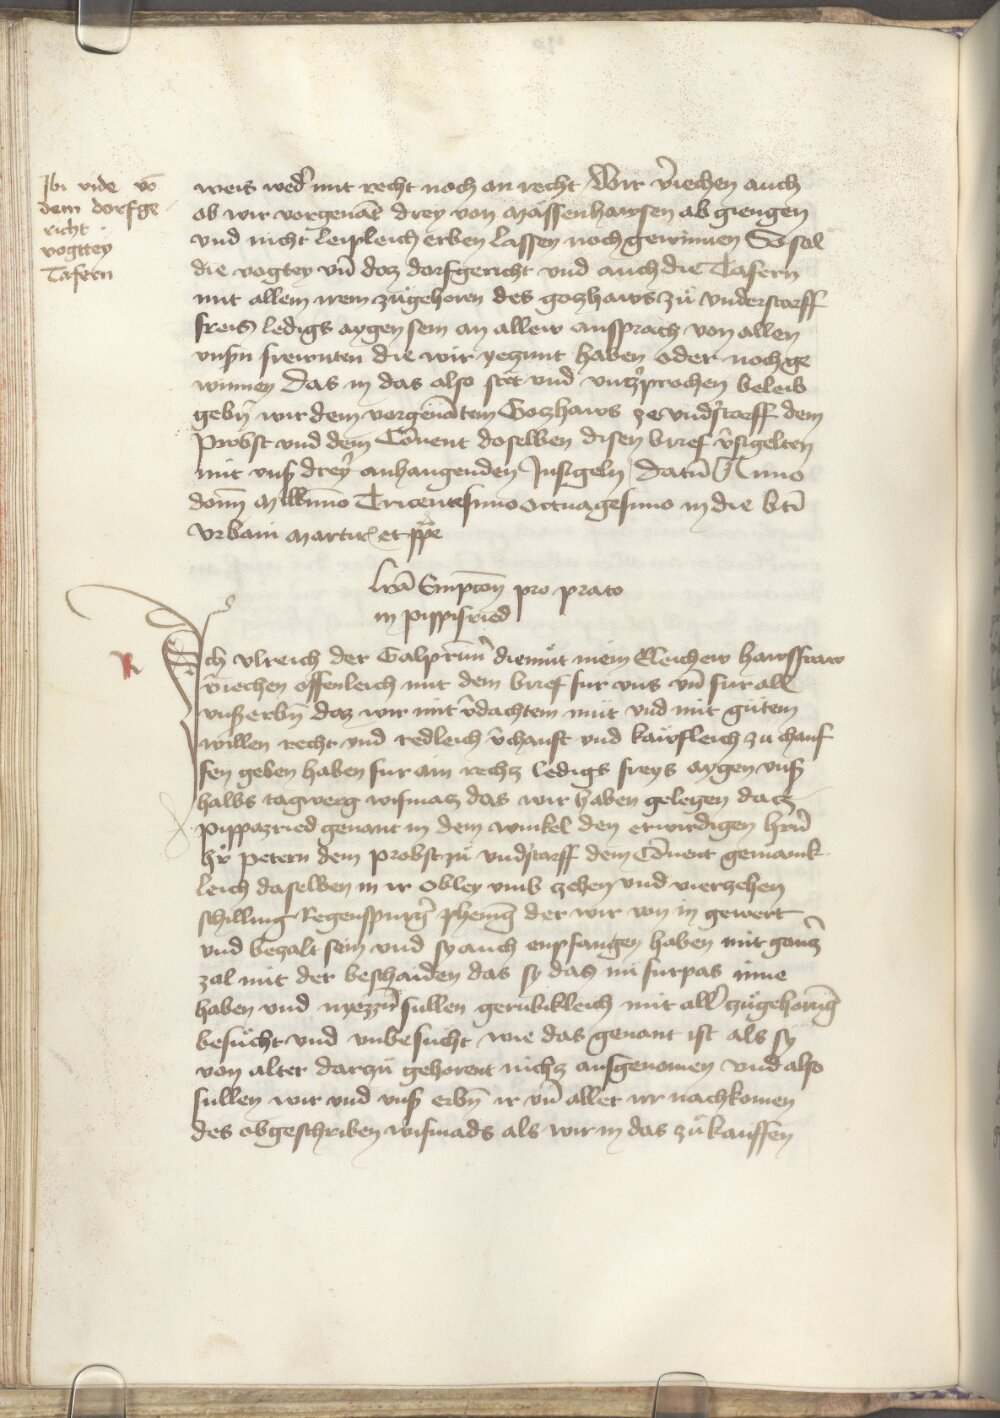 Ibi vide võ
dem dorfge
richt
vogttey
Tafern
weis wed̉ mit recht noch an recht Wir v̉iechen auch
ob wir vorgenãt drey von Mässenhawsen ab giengen
vnd nicht leipleich erben lassen noch gewinnen So sol
die vogtey vñ daz dorfgericht vnd auch die Tafern
mit allem irem zůgehoren des gozhaws zů vnderstorff
freis ledigs aygen sein an allew ansprach von allen
vnsn̄ frewnten die wir yeczunt haben oder noch ge
winnen Das in das also stet vnd vnczp̉rochen beleib
gebn̄ wir dem vorgenãtem Gozhaws ze vnd̉storff dem
Probst vnd dem Cõuent doselben disen brief v̉sigelten
mit vnsß dreÿ anhangenden Insigeln Datũ Anno
domĩ Millm̃o Tricentesimo octuagesimo in die bt̃i
Vrbani Martir̉ et ppe
Lr̃a Empcõn̄ pro prato
in pippisried
Ich vlreich der Galprũn̉ diemůt mein Eleichew hawsfraw
v̉iechen offenleich mit dem brief fur vns vñ fur all
vnsß erbn̄ daz wir mit v̉dachtem můt vnd mit gůtem
willen recht vnd redleich v̉chauft vnd kawfleich zu chauf
fen geben haben fur ain rechz ledigs freys aygen vnsß
halbs tagwerg wismaz das wir haben gelegen dacz
Pippazried genant in dem winkel den erwirdigen hr̃n̉
hr̃ Petern dem probst zů vnd̉storff dem Cõuent gemaink
leich daselben in ir Obley vmb zehen vnd vierzehen
schilling Regenspurg̉ phening̃ der wir von in gewert
vnd bezalt sein vnd sy auch enpfangen haben mit gancz̉
zal mit der beschaiden das sy das nů furpas inne
haben vnd nyezzn̄ sullen gerubikleich mit all̉ zůgehorũg
besůcht vnd vnbesůcht wie das genant ist als sy
von alter darzů gehorent nichz ausgenomen vnd also
sullen wir vnd vnsß erbn̄ ir vñ aller irr nachkomen
des obgeschriben wismads als wir in das zů kauffen